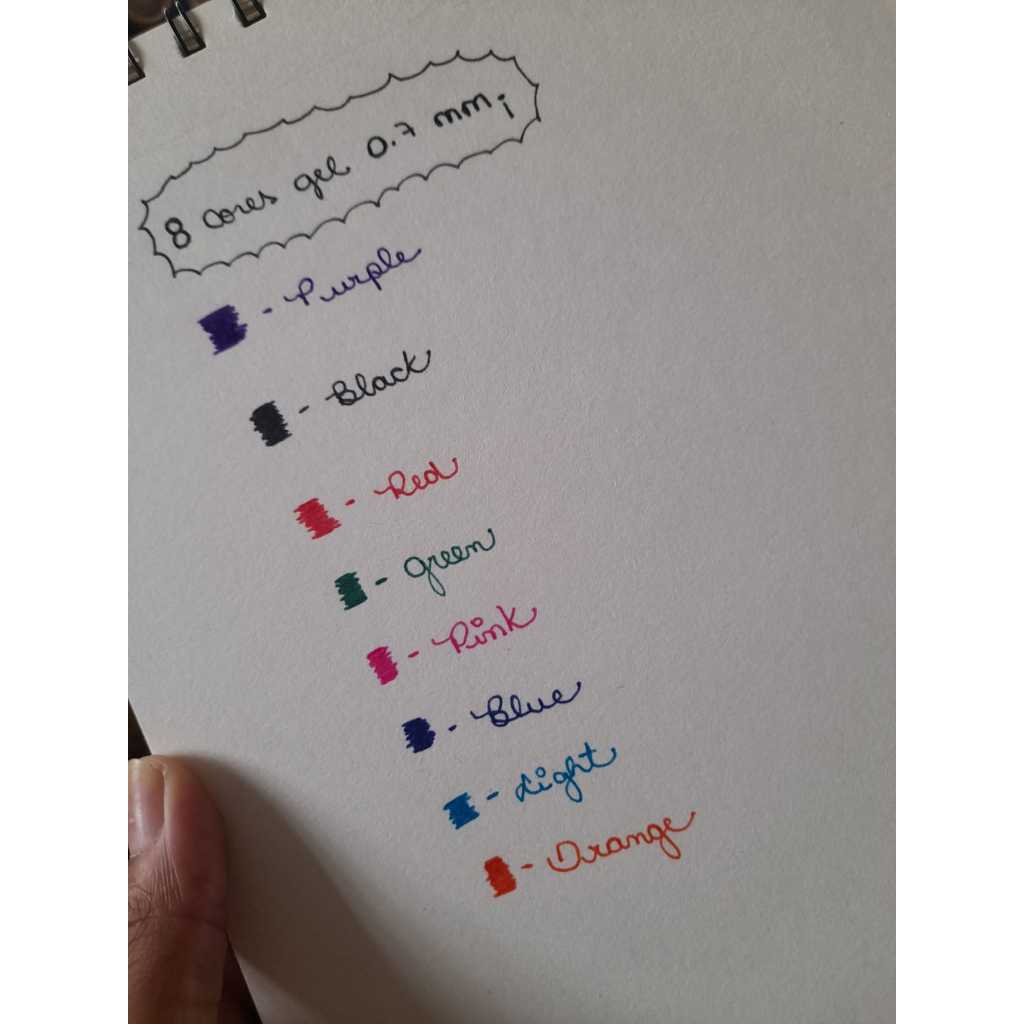 8 cores gel 0.7 mm;
- Purple
- Black
- Red
- Green
- Pink
- Blue
- Light
- Orange